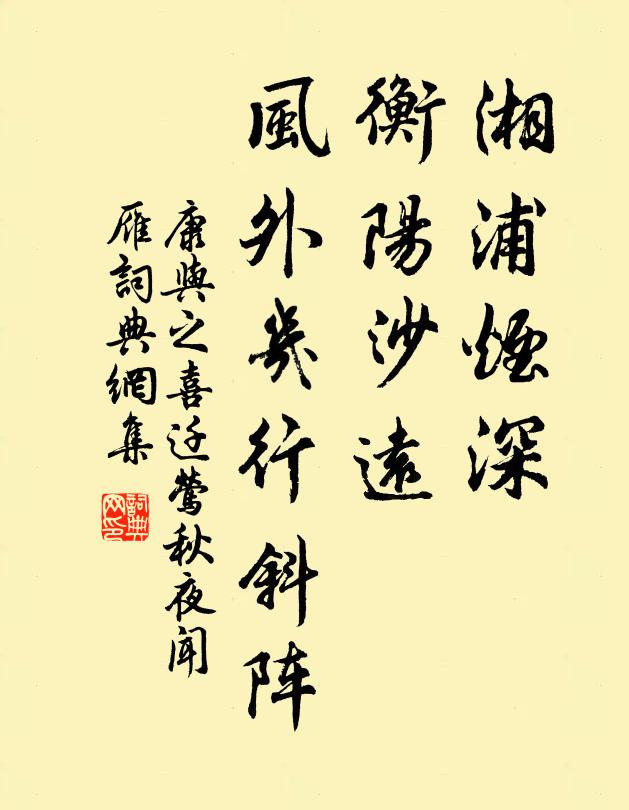 湘浦煙深
衡陽沙遠
風外幾行斜阵
康與之喜迁鶯秋夜聞
雁詞典網集
詞典网印